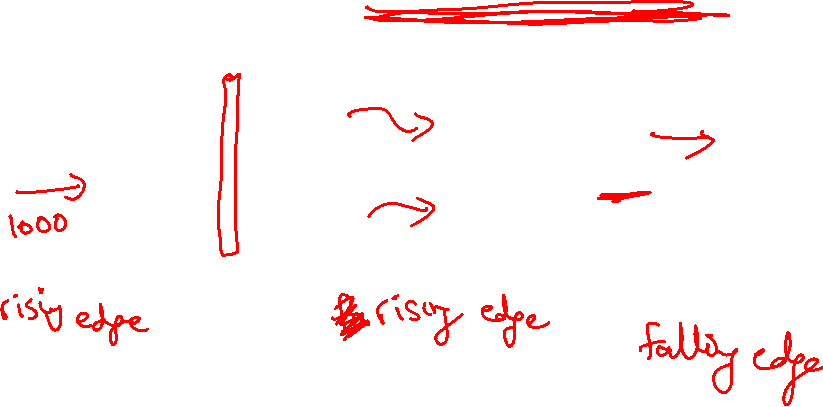 1000
rising edge
rising edge
falling edge